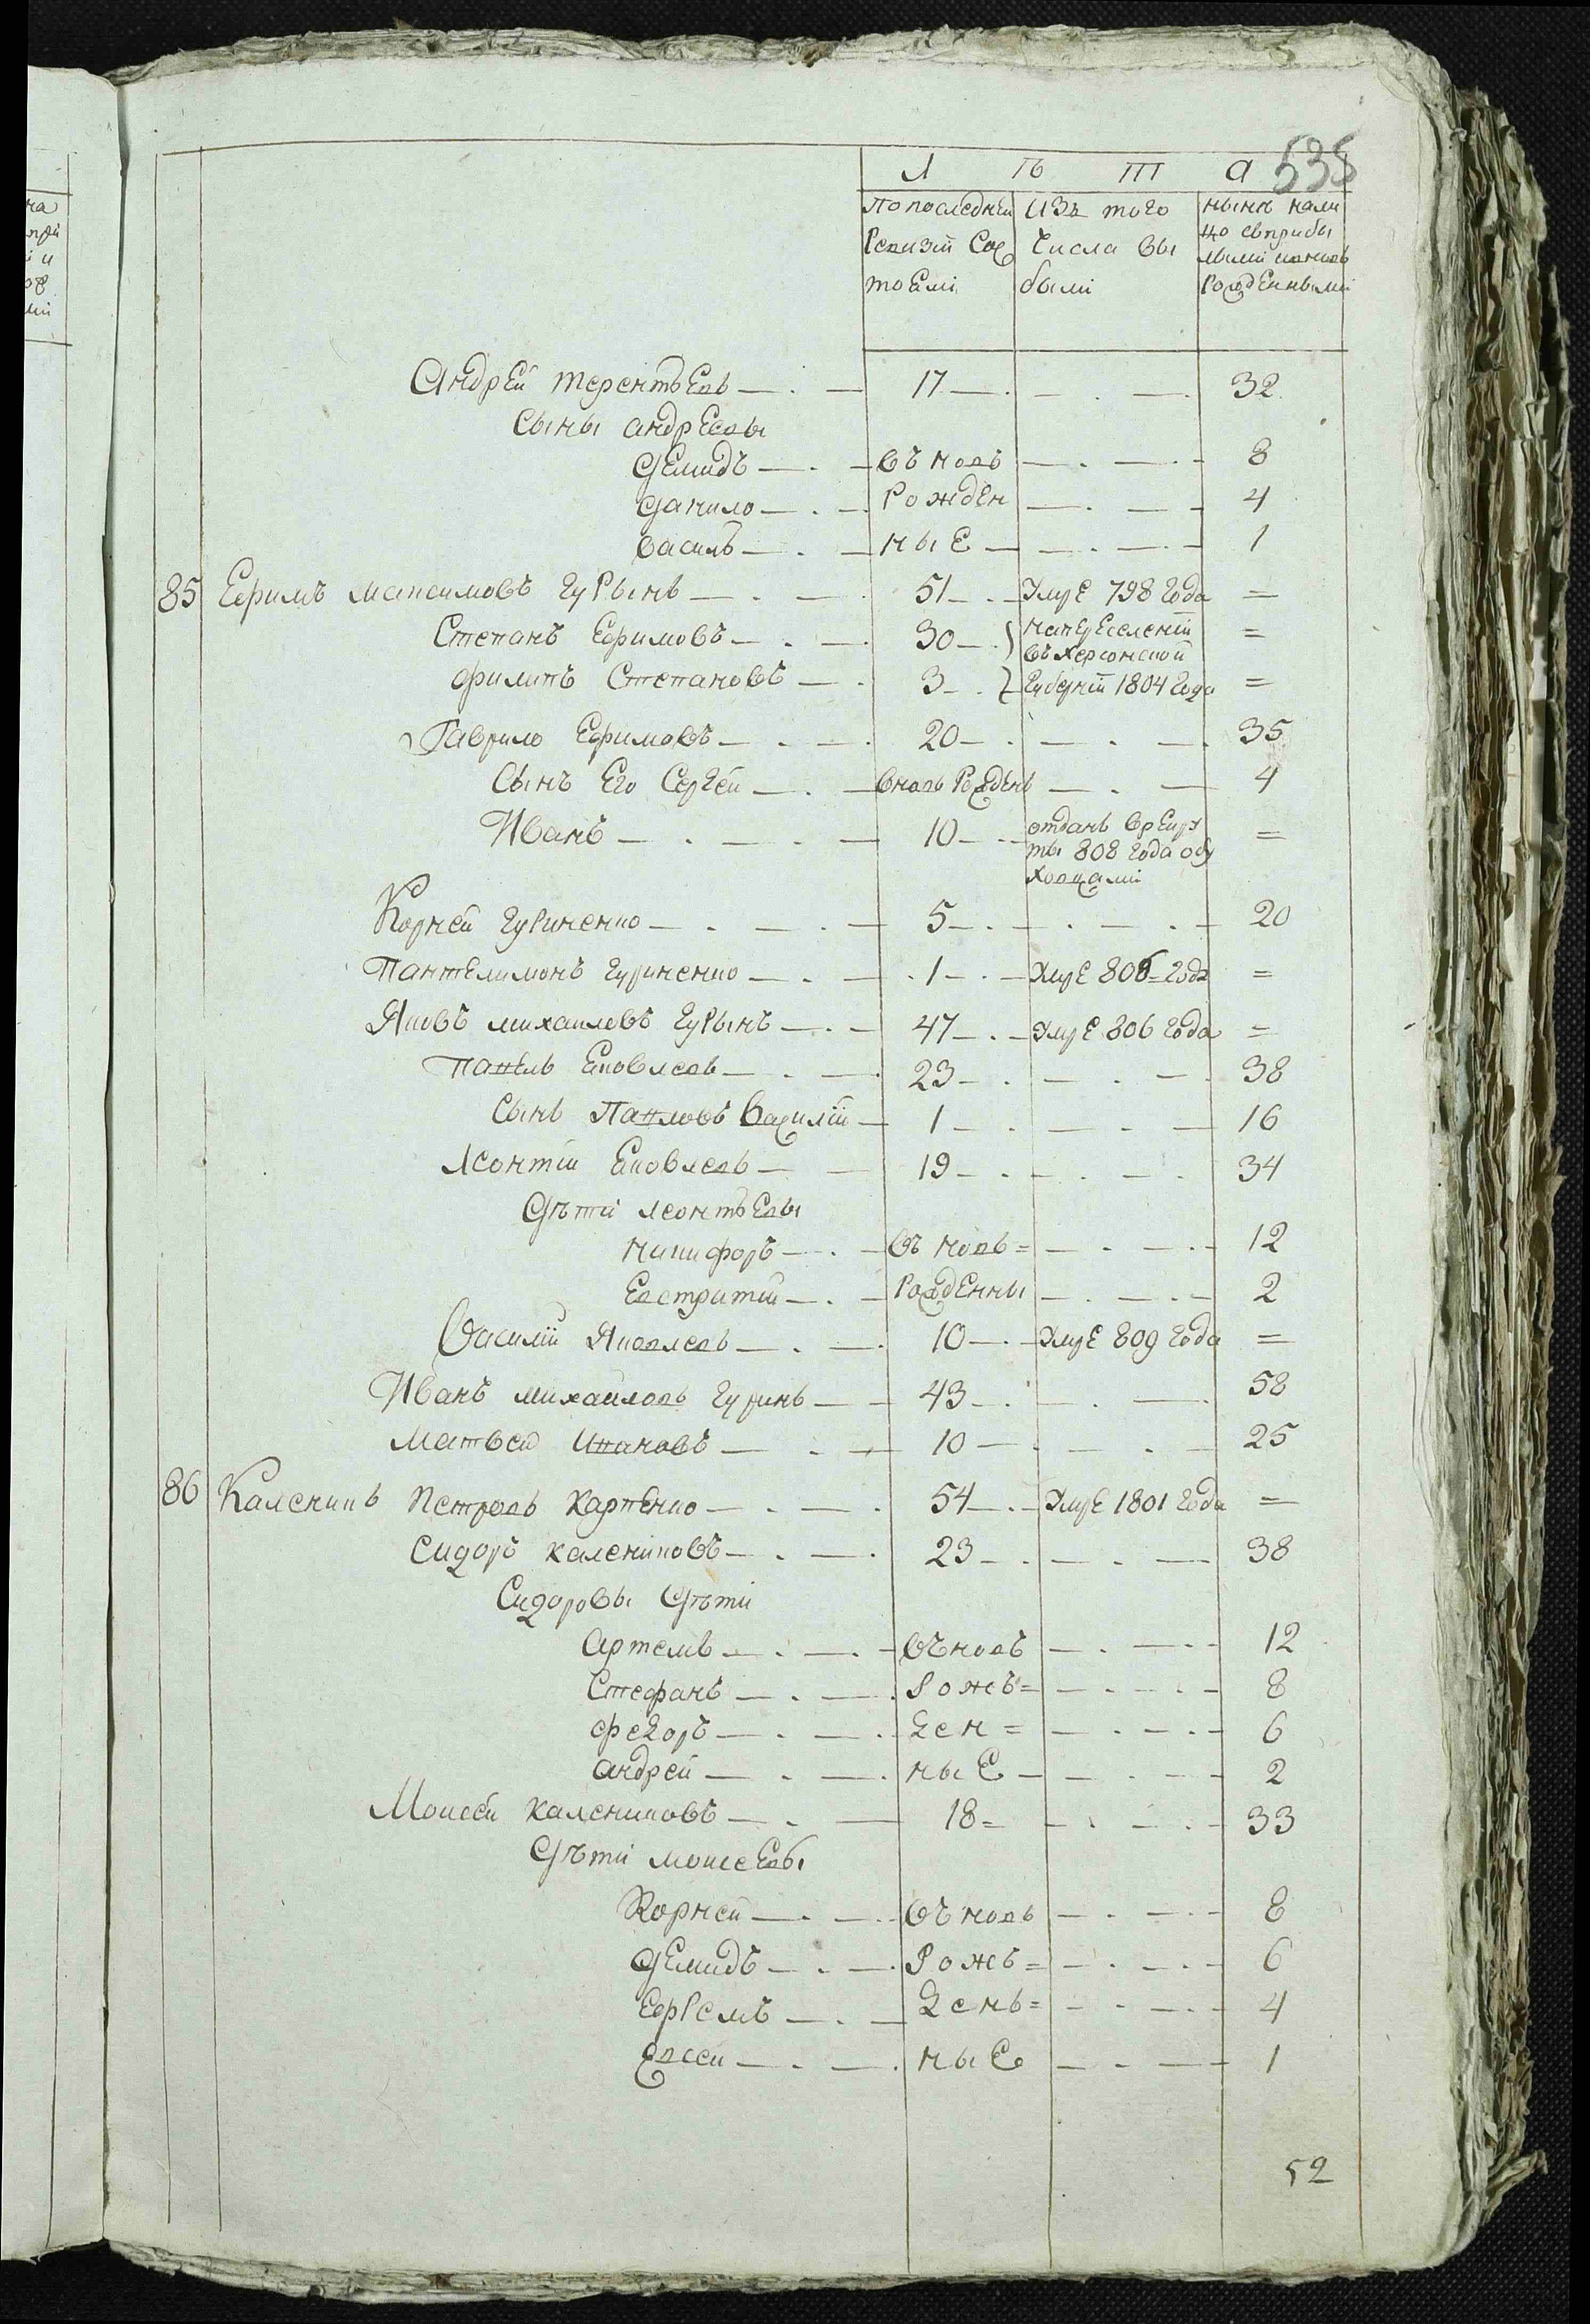 535
Л ѣ т а
По последней Изъ того нынѣ нали
Ревизіи Сос числа вы цо съприбы
тоЕли были лыми иновь
Рожденными
Андрей терентьЕвъ 17 32
Сыны андрЕевы
ДЕмидъ въ новь 8
Данило Рожден 4
Василь ныЕ 1
85 Ефимъ максимовъ гуРынь 51 УмрЕ 798 года =
Степанъ Ефимовъ 30 напереселеніи =
въ Херсонской
филипъ Степановъ 3 Губерніи 1804 года =
Гаврило Ефимовъ 20 35
Сынъ Его Сергей вновь Рожденъ 4
Иванъ 10 отданъ врЕкру =
ты 808 года обу
ховцами
Корней гуриненко 5 20
ПантЕлимонъ гуриненко 1 УмрЕ 806 года =
Яковъ михаиловъ гуРынъ 47 УмрЕ 806 года =
ПавЕлъ Ековлевъ 23 38
Сынъ Павловъ Василій 1 16
Леонтій Ековлевъ 19 34
Дѣти леонтьЕвы
никифоръ въ новь = 12
Евстратій РождЕнны 2
Василій Яковлевъ 10 УмрЕ 809 года =
Иванъ михаиловъ гуринь 43 58
Матвей Ивановъ 10 25
86 Каленикъ Петровъ КарпЕнко 54 УмрЕ 1801 года =
Сидоръ калениковъ 23 38
Сидоровы Дѣти
Артемъ въновь 12
Стефанъ Рожъ = 8
федоръ ден = 6
андрей ныЕ 2
Моисей калениковъ 18 = 33
Дѣти моисеЕвы
Корней въ новь 8
ДЕмидъ Рожъ = 6
ЕфРемъ день = 4
Евсей ныЕ 1
52